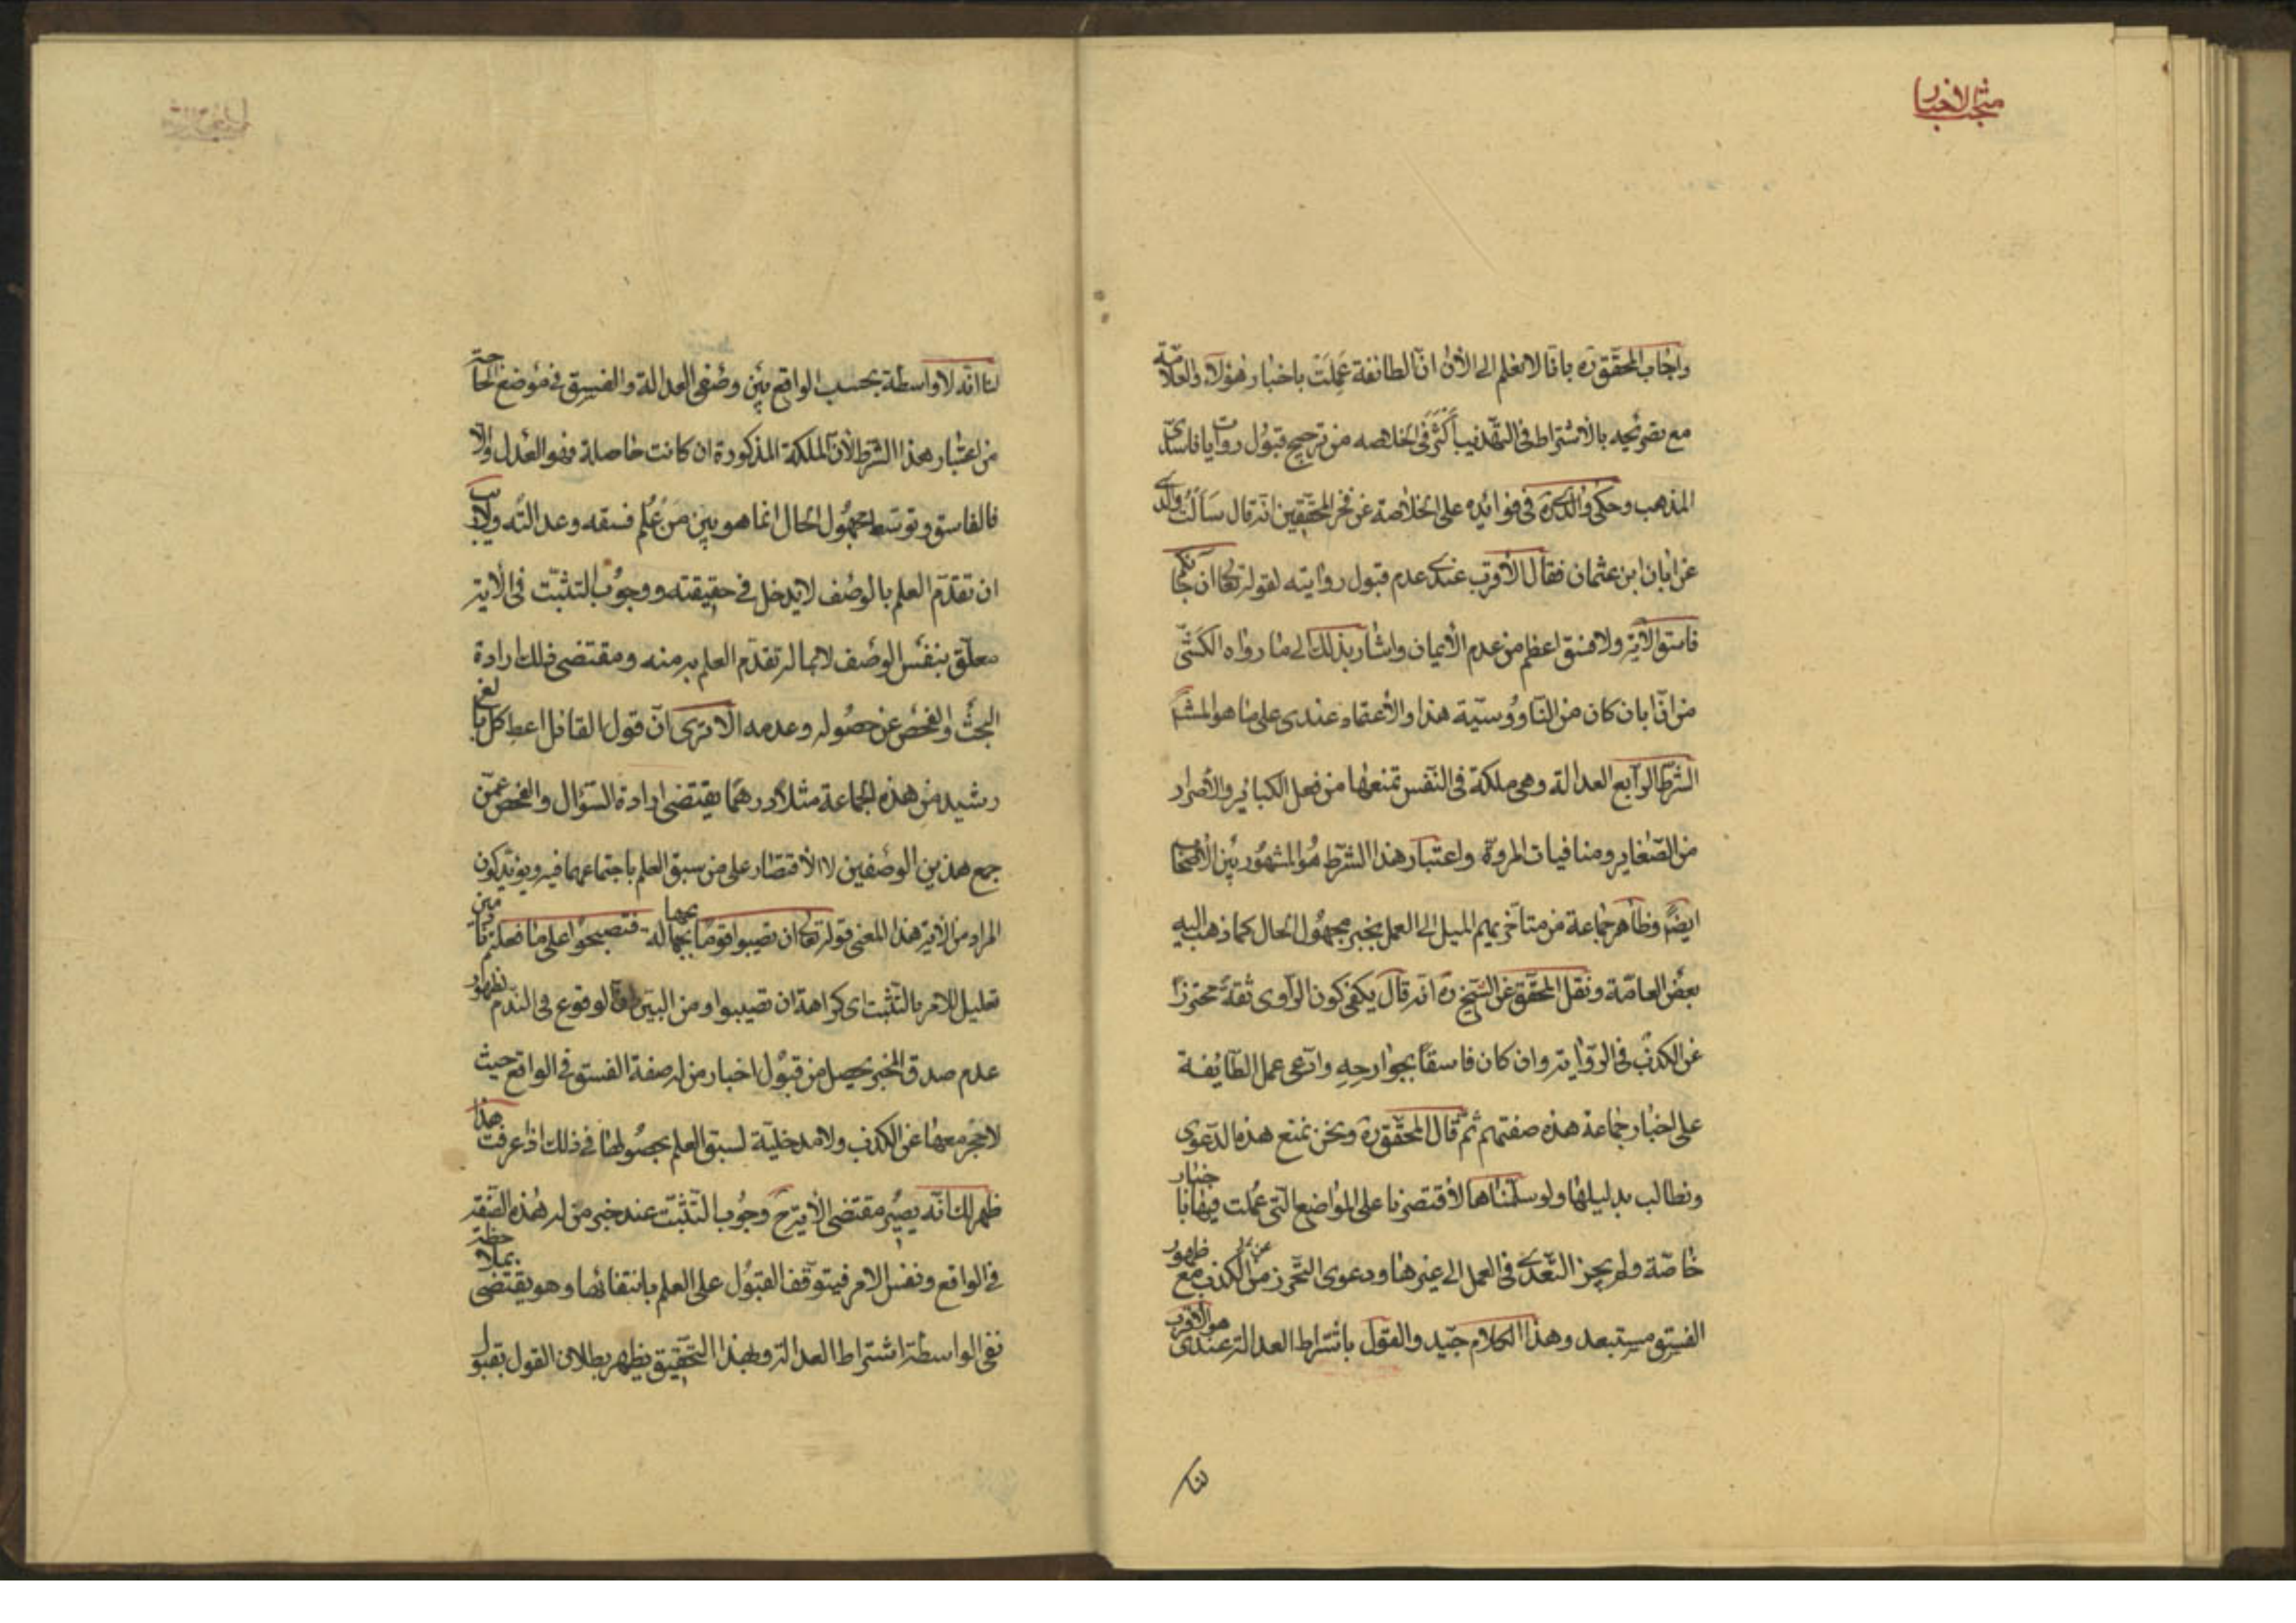 منتخب الاخبار
واجاب المحقق ره بانا لا نعلم الى الآن ان الطائفة عملت باخبار هؤلاء والعلامة
مع تصريحه بالاشتراط فى التهذيب أكثر فى الخلاصه من ترجيح قبول روايات فاسدى
المذهب وحكى والدى ره فى فوائده على الخلاصة عن فخر المحققين انه قال سألت والدى
عن ابان ابن عثمان فقال الأقرب عندى عدم قبول روايته لقوله تعالى ان جاءكم
فاسق الآية ولا فسق اعظم من عدم الأيمان واشار بذلك الى ما رواه الكشّى
من انّ ابان كان من النّاووسيّة هذا والأعتماد عندى على ما هو المشهور
الشرط الرابع العدالة وهى ملكة فى النّفس تمنعها من فعل الكبائر والأصرار
من الصّغاير ومنافيات المروّة واعتبار هذا الشّرط هو المشهور بين الأصحاب
ايضًا وظاهر جماعة من متأخريهم الميل الى العمل بخبر مجهول الحال كما ذهب اليه
بعض العامّة ونقل المحقّق عن الشيخ ره انه قال يكفى كون الرّاوى ثقة محترزًا
عن الكذب فى الرّواية وان كان فاسقًا بجوارحه وادّعى عمل الطّايفة
على اخبار جماعة هذه صفتهم ثم قال المحقق ره ونحن نمنع هذه الدّعوى
ونطالب بدليلها ولو سلّمناها لأقتصرنا على المواضع الّتى عملت فيها باخبار
خاصّة ولم يجز التعدّى فى العمل الى غيرها ودعوى التحرّز من الكذب مع ظهور
الفسق مستبعد وهذا الكلام جيّد والقول باشتراط العدالة عندى هو الاقرب
لنا
لنا انّه لا واسطة بحسب الواقع بين وصفى العدالة والفسق فى موضع الحاجة
من اعتبار هذا الشرط لأنّ الملكة المذكورة ان كانت حاصلة فهو العدل والّا
فالفاسق وتوسّط مجهول الحال انما هو بين من عُلم فسقه وعدالته ولا ريب
ان تقدّم العلم بالوصف لا يدخل فى حقيقته ووجوب التثبّت فى الآية
معلّق بنفس الوصف لا بما تقدّم العلم به منه ومقتضى ذلك ارادة
البحث والفحص عن حصوله وعدمه الا ترى انّ قول القائل اعط كل بالغ
رشيد من هذه الجماعة مثلًا درهمًا يقتضى ارادة السّؤال والفحص عمّن
جمع هذين الوصفين لا الأقتصار على من سبق العلم باجتماعهما فيه ويؤيد كون
المراد من الآية هذا المعنى قوله تعالى ان تصيبوا قومًا بجهالة فتصبحوا على ما فعلتم نادمين
تعليل للامر بالتّثبت اى كراهة ان تصيبوا ومن البيّن انّ الوقوع فى النّدم لظهور
عدم صدق المخبر يحصل من قبول اخبار من له صفة الفسق فى الواقع حيث
لا حجر معها عن الكذب ولا مدخليّة لسبق العلم بحصولها فى ذلك اذا عرفت هذا
ظهر لك انّه يصير مقتضى الآية ح وجوب التّثبّت عند خبر من له هذه الصّفة
فى الواقع ونفس الامر فيتوقّف القبول على العلم بانتفائها وهو يقتضى بملاحظة
نفى الواسطة اشتراط العدالة وبهذا التّحقيق يظهر بطلان القول بقبول